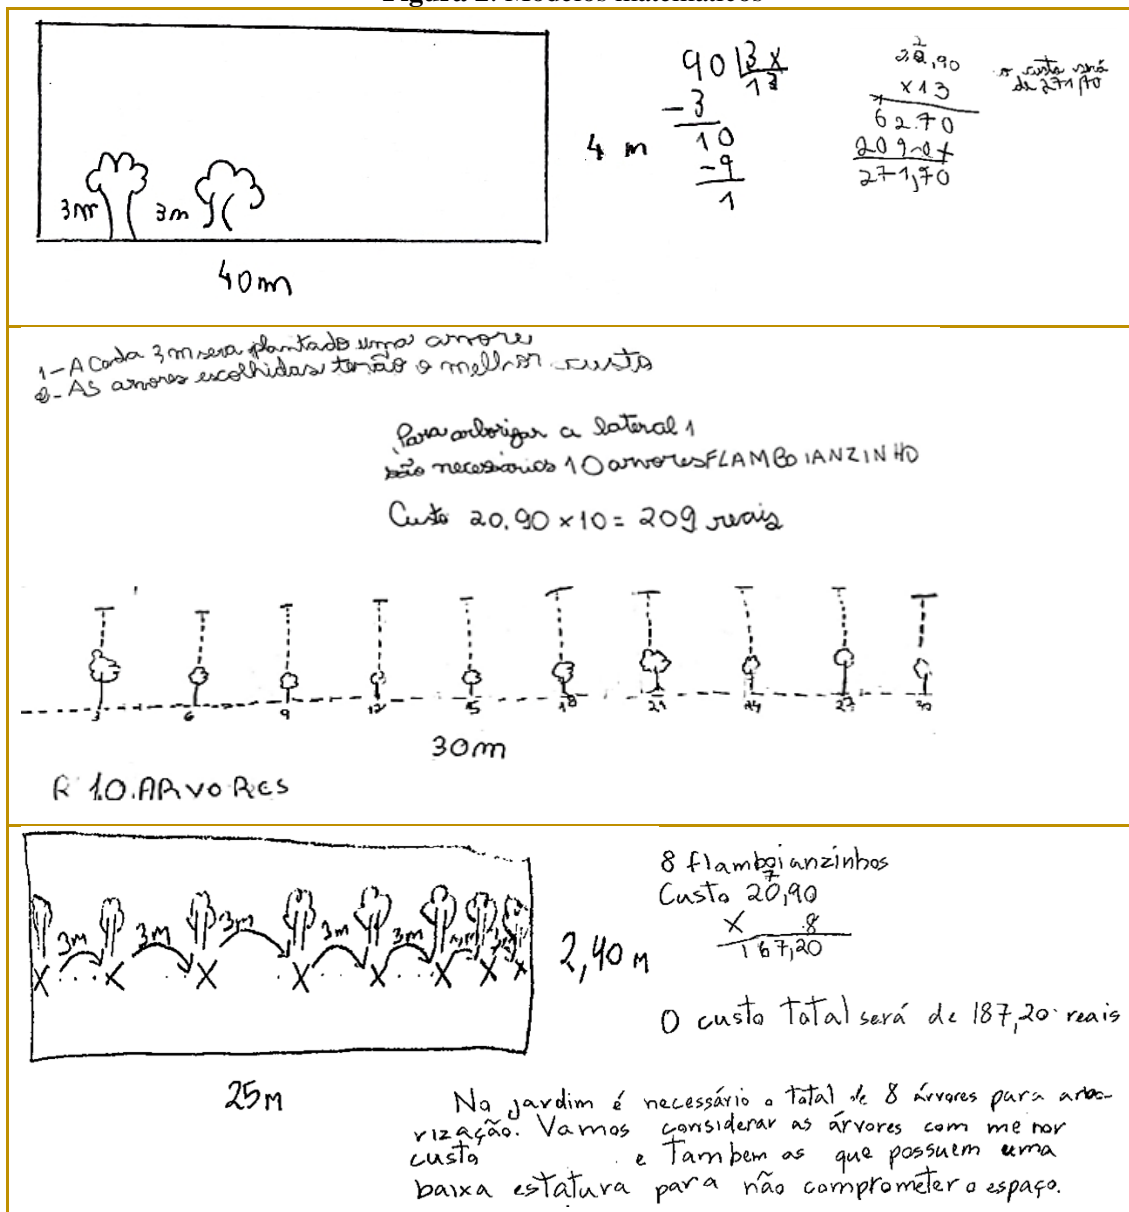 Figura 2: Modelos matemáticos
3m 3m
40m
4 m
90 3 x
13
-3
10
-9
1
2
20,90
x13
62.70
209 0+
271,70
o custo será
de 271,70
1-A Cada 3 m sera plantado uma arvore
2-AS arvores escolhidas terão o melhor custo
Para arborizar a lateral 1
são necessarios 10 arvores FLAMBOIANZINHO
Custo 20,90 x 10 = 209 reais
3 6 9 12 15 18 21 24 27 30
30m
R 10.ARVORES
3m 3m 3m 3m 3m 3m 3m
2,40 m
25m
8 flamboianzinhos
7
Custo 20,90
X 8
167,20
O custo total será de 187,20 reais
No jardim é necessário o total de 8 árvores para arbo-
rização. Vamos considerar as árvores com menor
custo e Tambem as que possuem uma
baixa estatura para não comprometer o espaço.